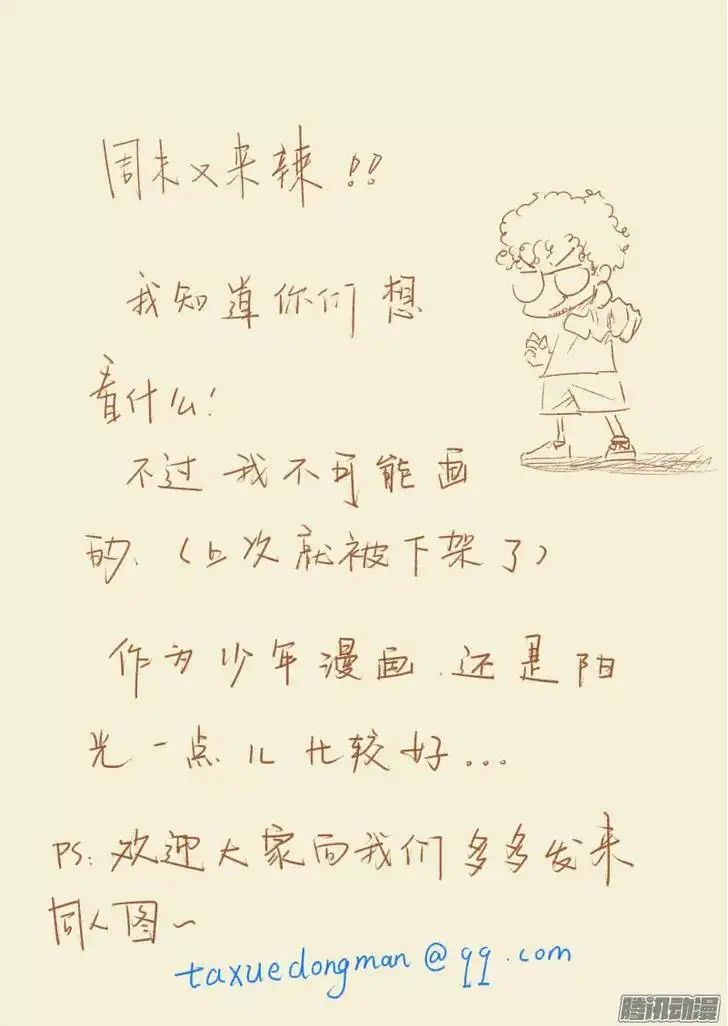 周末又来辣!!
我知道你们想
看什么!
不过我不可能画
的、(上次就被下架了)
作为少年漫画、还是阳
光一点儿比较好...
PS:欢迎大家向我们多多发来
同人图~
taxuedongman@qq.com
腾讯动漫